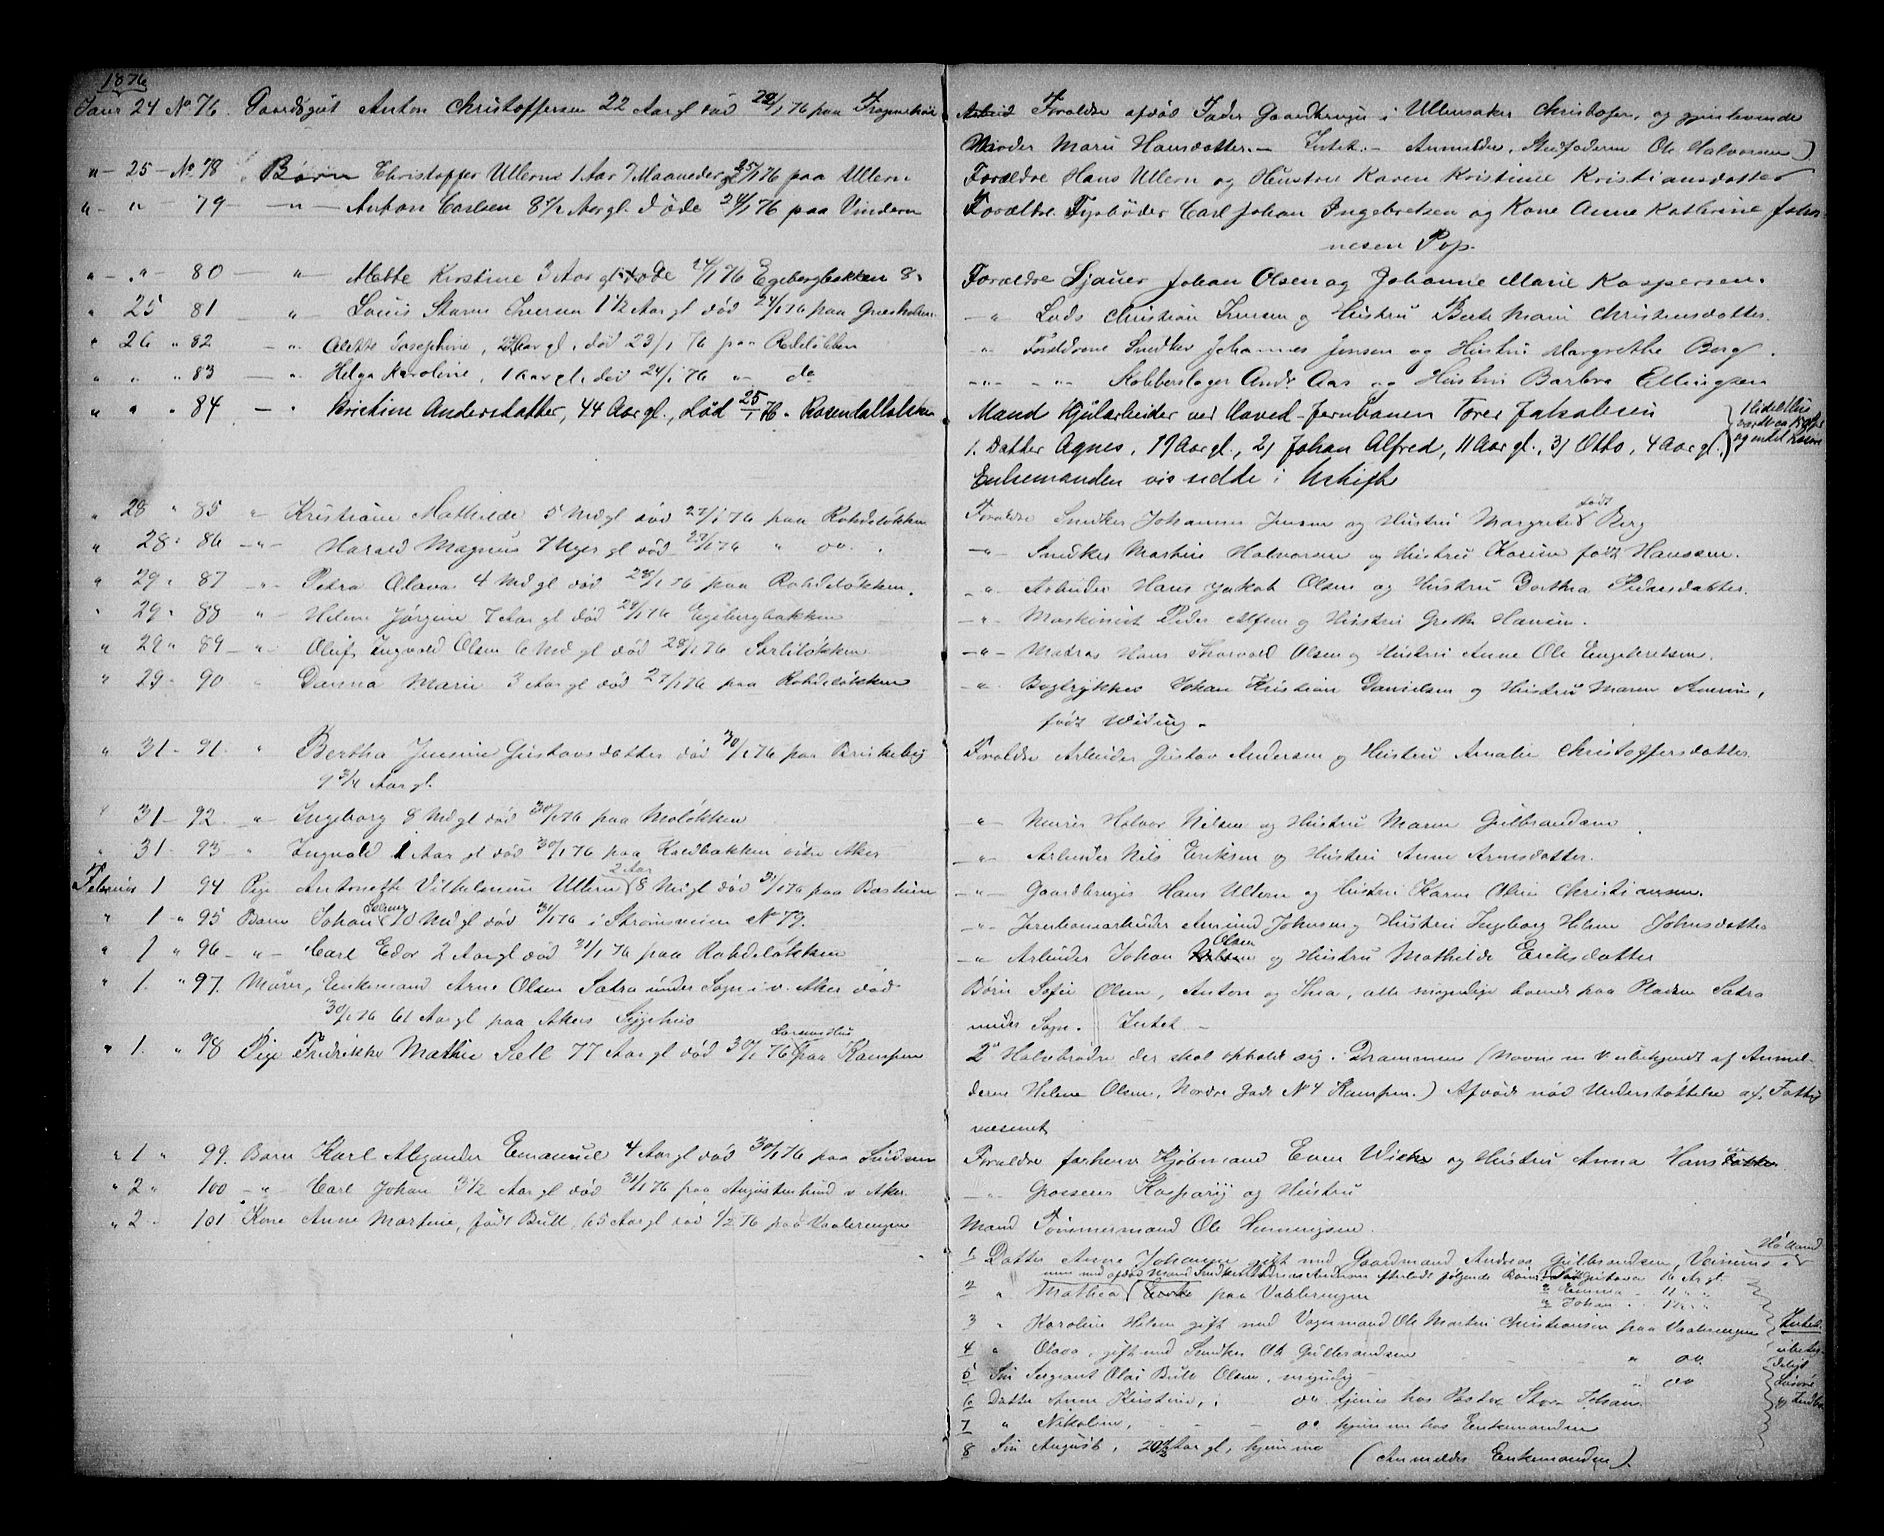 1876
Janr 24 No 76. Gaardsgut Anton Christoffersen 22 Aar gl død 22/1 76 paa
Forældre afdød Fader Gaardbruger i Ullensaker Christofer, og gjenlevende
Moder Mari Hansdatter. — Intet. — Anmelder, Stedfaderen Ole Halvorsen)
" — 25 — No 78 Børn Christoffer Ullern 1 Aar 7 Maaneder gl 25/1 76 paa Ullern
Forældre Hans Ullern og Hustru Karen Kristine Kristiansdatter
" — " — 79 — " — Anton Carlsen 8 1/2 Aar gl. døde 24/1 76 paa Vindern
Forældre Carl Johan Ingebretsen og Kone Anne Kathrine Johan-
nesen Pop.
" — " — 80 — " — Mette Kirstine 3 Aar gl døde 24/1 76 Egebergbakken 8.
Forældre Sjauer Johan Olsen og Johanne Marie Kaspersen.
" 25 81 " Louis Iversen 1 1/2 Aar gl død 24/1 76 paa Græsholmen
— " Lods Christian Iversen og Hustru Berte Mari Christensdatter.
" 26 " 82 — " Alette Josephine, Aar gl. død 23/1 76 paa Rodeløkken
" Forældrene Snedker Johannes Jensen og Hustru Margrethe Berg.
" " " 83 — " Helga Karoline, 1 Aar gl. død 24/1 76 — " — do
" — " Kobberslager Andr Aas og Hustru Barbra Ellingsen
" " " 84 — " Kristine Andersdatter, 44 Aar gl., død 25/1 76.
Mand Hjularbeider ved Hoved-Jernbanen Tores Jakobsen
1. Datter Agnes, 17 Aar gl., 2) Johan Alfred, 11 Aar gl., 3) Otto, 4 Aar gl.
Enkemanden vil sidde i Uskifte
" 28 " 85 " Kristiane Mathilde 5 Md gl død 27/1 76 paa Rohdeløkken
Forældre Snedker Johannes Jensen og Hustru Margrete født Berg
" 28 " 86 — " — Harald Magnus 7 Uger gl død 27/1 76 " do. "
— " — Snedker Martin Halvorsen og Hustru Karine født Hanssen.
" 29 " 87 " Petra Olava 4 Md gl død 28/1 76 paa Rohdeløkken.
— " — Arbeider Hans Jakob Olsen og Hustru Dorthea Pedersdatter.
" 29 " 88 " Helene Jørgine 7 Aar gl død 29/1 76 Egebergbakken
— " — Maskinist Peder Alfsen og Hustru Grethe Hansen.
" 29 " 89 — " Oluf Ingvald Olsen 6 Md gl død 28/1 76 Sarsløkken
— " — Matros Hans Thorvald Olsen og Hustru Anne Ole Engebretsen.
" 29 — 90 " Danna Marie 3 Aar gl død 27/1 76 paa Rohdeløkken
— " — Bogtrykker Johan Kristian Danielsen og Hustru Maren
født Widing.
" 31 — 91. " Bertha Jensine Gustavsdatter død 30/1 76 paa Briskeby
Forældre Arbeider Gustav Andersen og Hustru Amalie Christoffersdatter
9 3/4 Aar gl.
" 31 — 92. — " — Ingeborg 8 Md gl død 30/1 76 paa Moløkken
— " — Murer Halvor Nilsen og Hustru Maren Gulbrandsen
" 31 — 93 — " Ingvald 1 Aar gl død 30/1 76 paa Koldbakken
— " — Arbeider Nils Eriksen og Hustru Anne Arnesdatter.
Februar 1 94 Pige Antonette Vilhelmine Ullern 2 Aar 8 M gl død 31/1 76 paa Bæstum
— " — Gaardbruger Hans Ullern og Hustru Karen Olsen Christiansen.
" 1 " 95 Barn Johan 10 Md gl død 31/1 76 i Strømsveien No 79.
— " — Jernbanearbeider Amund Johnsen og Hustru Ingborg Helene Johnsdatter
" 1 " 96 — " — Carl Edor 2 Aar gl død 31/1 76 paa Rohdeløkken
— " Arbeider Johan Olsen og Hustru Mathilde Eriksdatter
" 1. " 97. Murer, Enkemand Arne Olsen Sætra under Sogn i v. Aker død
Børn Sofie Olsen, Anton og Thea, alle myndige boende paa Pladsen Sætra
30/1 76 61 Aar gl paa Akers Sygehus
under Sogn. Intet. —
" 1. " 98 Pige Fredrikke Mathea Sell 77 Aar gl død 30/1 76 paa Kampen
2de Halvbrødre der skal opholde sig i Drammen (Navne m v ubekjendt af Anmel-
deren Helene Olsen, Nordre Gade No 4 Kampen.) Afdøde nød Understøttelse af Fattig
væsenet
" 1 " 99. Barn Karl Alexander Emanuel 4 Aar gl død 30/1 76 paa
Forældre forhenv Kjøbmand Even Wiche og Hustru Anna Hansdatter
" 2 " 100 — " — Carl Johan 3 1/2 Aar gl død 31/1 76 paa Augustenlund v Aker
— " — Grosserer Kasparij og Hustru
" 2 101 Kone Anne Martine, født Bull, 65 Aar gl død 1/2 76 paa Vaalerengen
Mand Tømmermand Ole Henningsen
1 Datter Anne Johanne gift med Gaardmand Andreas Gulbrandsen, i Høland
2 " Mathea Enke paa Vaalerengen
Emma " 11 " "
Johan
3 " Karoline Helene gift med Vognmand Ole Martin Christiansen paa Vaalerengen
4 " Olava, gift med Snedker Ole Gulbrandsen " do
5 Søn Sergeant Olai Bull Olsen, myndig — " do
6 Datter Anne Kristine, do tjener hos Pastor Johan
7 " Nikoline, — — do hjemme hos Enkemanden
8 Søn August, Aar gl, hjemme
(Anmelder Enkemanden).